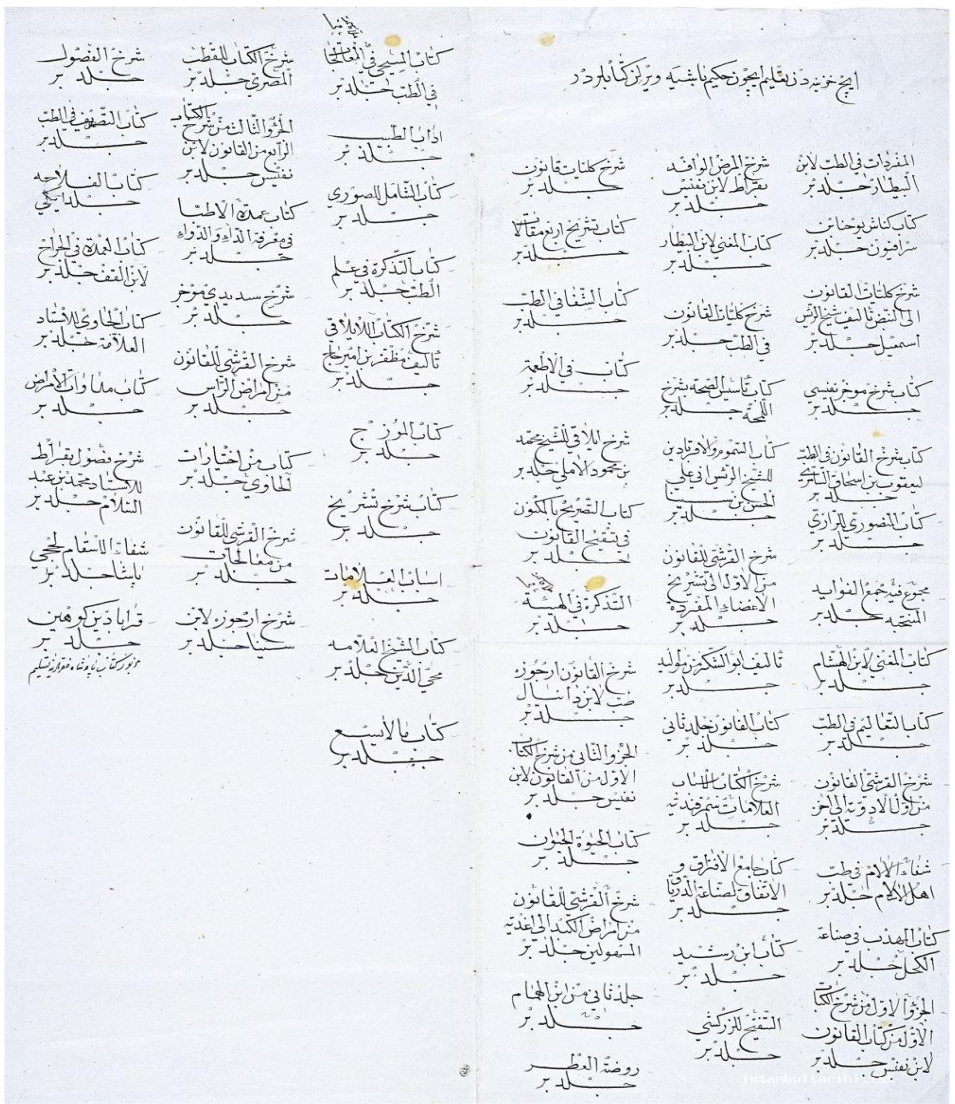 ايچ خزينه دن تعليم ايچون حكيم باشيه ويرلن كتابلردر
المفردات في الطب لابن
البيطار جلد بر
كتاب كناش يوحنا بن
سرافيون جلد بر
شرح كليات القانون
الى النبض تأليف شيخ الرئيس
اسمعيل جلد بر
كتاب شرح موجز نفيسي
جلد بر
كتاب شرح القانون في الطب
ليعقوب بن اسحاق
جلد بر
كتاب المنصوري للرازي
جلد بر
مجموع فيه جمع الفوايد
المنتخبه جلد بر
كتاب المغني لابن الهمام
جلد بر
كتاب التعاليم في الطب
جلد بر
شرح القرشي القانون
من اول الادوية الى اخر
جلد بر
شفاء الالام في طب
اهل الاسلام جلد بر
كتاب المهذب في صناعة
الكحل جلد بر
الجزؤ الاول من شرح الكتاب
الاول من كتاب القانون
لابن نفيس جلد بر
شرح المرض الوافد
بقراط لابن نفيس
جلد بر
كتاب المغني لابن البيطار
جلد بر
شرح كليات القانون
في الطب جلد بر
كتاب تأسيس الصحة شرح
اللمحة جلد بر
كتاب السموم والاقرابادين
للشيخ الرئيس ابي علي
الحسن بن سينا
جلد بر
شرح القرشي للقانون
من الاول الى تشريح
الاعضاء المفردة
جلد بر
تأليف ابو الشكر
جلد بر
كتاب القانون جلد ثاني
جلد بر
شرح الكتاب الاسباب
العلامات سمرقنديه
جلد بر
كتاب جامع الافتراق و
الاتفاق لصناعة الدرياق
جلد بر
كتاب ابن رشيد
جلد بر
التنقيح للزركشي
جلد بر
شرح كليات قانون
جلد بر
كتاب تشريح اربع مقالات
جلد بر
كتاب الشفا في الطب
جلد بر
كتاب في الاطعمة
جلد بر
شرح ايلاقي للشيخ محمد
بن محمود الاملي جلد بر
كتاب التصريح بالمكنون
في تنقيح القانون
جلد بر
التذكرة في الهيئة
جلد بر
شرح القانون ارجوزه
طب لابن دانيال
جلد بر
الجزؤ الثاني من شرح الكتاب
الاول من القانون لابن
نفيس جلد بر
كتاب الحيوة الحيوان
جلد بر
شرح القرشي للقانون
من امراض الكبد الى اغذية
المسهولين جلد بر
جلد ثاني من ابن الهمام
جلد بر
روضة العطر
جلد بر
كتاب المسيحي في المعالجات
في الطب جلد بر
اداب الطبيب
جلد بر
كتاب الشامل للصوري
جلد بر
كتاب التذكرة في علم
الطب جلد بر
شرح الكتاب للايلاقي
تأليف مظفر بن امير حاج
جلد بر
كتاب
جلد بر
كتاب شرح تشريح
جلد بر
اسباب العلامات
جلد بر
كتاب الشيخ العلامه
محي الدين جلد بر
كتاب ما لا يسع
جلد بر
شرح الكتاب القطب
المصري جلد بر
الجزؤ الثالث من شرح الكتاب
الرابع من القانون لابن
نفيس جلد بر
كتاب عمدة الاطبا
في معرفة الداء والدواء
جلد بر
شرح سديدي موجز
جلد بر
شرح القرشي للقانون
من امراض الراس
جلد بر
كتاب من اختيارات
الحاوي جلد بر
شرح القرشي للقانون
من معالجات
جلد بر
شرح ارجوزه لابن
سينا جلد بر
شرح الفصول
جلد بر
كتاب التصريف في الطب
جلد بر
كتاب الفلاحه
جلد ايكي
كتاب العمدة في الجراح
لابن القف جلد بر
كتاب الحاوي للاستاد
العلامة جلد بر
كتاب مداوات الامراض
جلد بر
شرح فصول بقراط
للاستاد محمد بن عبد
السلام جلد بر
شفاء الاسقام لحجي
باشا جلد بر
قرابادين كوهين
جلد بر
istanbultarihi.ist